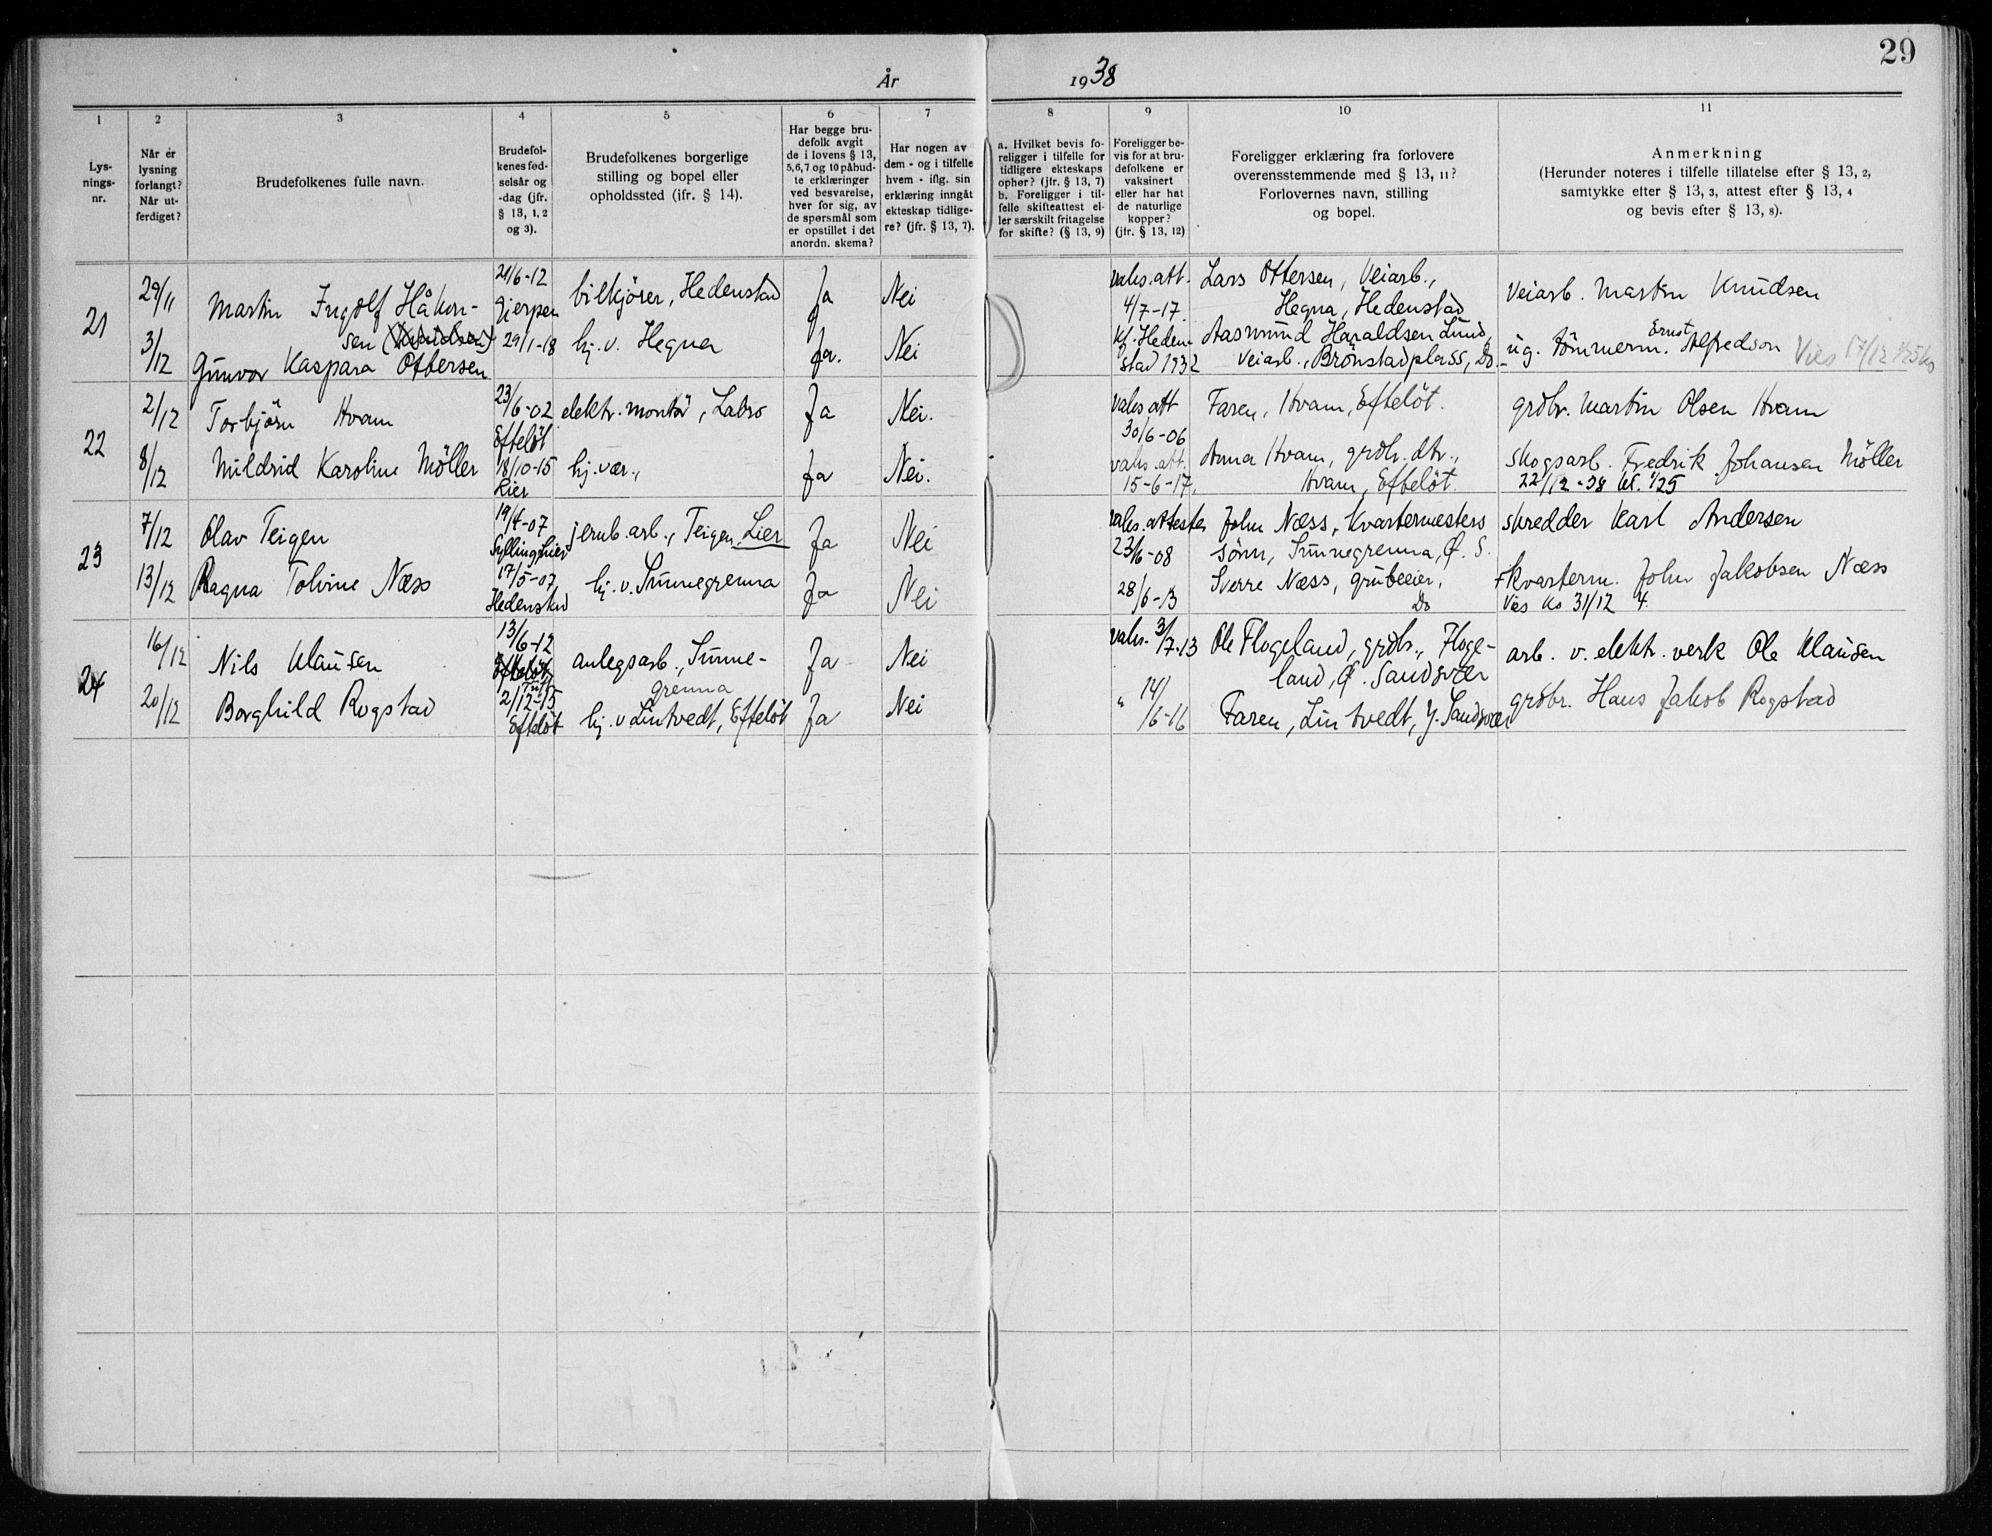 29
År 1938
1 2 3 4 5 6 7 8 9 10 11
Lys-
nings-
nr.
Når er
lysning
forlangt?
Når ut-
ferdiget?
Brudefolkenes fulle navn.
Brudefol-
kenes fød-
selsår og
-dag (jfr.
§ 13, 1, 2
og 3).
Brudefolkenes borgerlige
stilling og bopel eller
opholdssted (ifr. § 14).
Har begge bru-
defolk avgit
de i lovens § 13,
5,6,7 og 10 påbud-
te erklæringer
ved besvarelse,
hver for sig, av
de spørsmål som
er opstillet i det
anordn. skema?
Har nogen av
dem - og i tilfelle
hvem - iflg. sin
erklæring inngåt
ekteskap tidlige-
re? (jfr. § 13, 7).
a. Hvilket bevis fo-
religger i tilfelle for
tidligere ekteskaps
ophør? (jfr. § 13, 7)
b. Foreligger i til-
felle skifteattest el-
ler særskilt fritagelse
for skifte? (§ 13, 9)
Foreligger be-
vis for at bru-
defolkene er
vaksinert
eller har hat
de naturlige
kopper?
(jfr. § 13, 12)
Foreligger erklæring fra forlovere
overensstemmende med § 13, 11?
Forlovernes navn, stilling
og bopel.
Anmerkning
(Herunder noteres i tilfelle tillatelse efter § 13, 2,
samtykke efter § 13, 3, attest efter § 13, 4
og bevis efter § 13, 8).
21
29/11
3/12
Martin Ingolf Håkon-
sen (Knudsen)
Gunvor Kaspara Ottersen
21/6-12
Gjerpen
29/1-18
bilkjörer, Hedenstad
hj. v. Hegna
Ja
Ja.
Nei
Nei
vaks. att.
4/7-17.
Kf. Heden
stad 1932
Lars Ottersen, Veiarb.,
Hegna, Hedenstad
Aasmund Haraldsen Lund,
Veiarb., Brönstadplass, Do.
Veiarb. Martin Knudsen
ug. tömmerm. Ernst Alfredson Vies 17/12
22
2/12
8/12
Torbjörn Hvam
Mildrid Karoline Möller
23/6-02
Efteløt
18/10-15
Lier
elektr. montör, Labro
hj. vær.,
Ja
Ja
Nei.
Nei.
vaks. att
30/6-06
vaks. att.
15-6-17.
Faren, Hvam, Efteløt.
Anna Hvam, grdbr. dtr.,
Hvam, Efteløt.
grdbr. Martin Olsen Hvam
Skogsarb. Fredrik Johansen Möller
22/12-38 kl. 1/25
23
7/12
13/12
Olav Teigen
Ragna Tolvine Næss
19/4-07
Sylling, Lier
17/5-07
Hedenstad
jernb. arb., Teigen, Lier
hj. v. Sunnegrenna
Ja
Ja
Nei
Nei
vaks. attester
23/6-08
28/6-13
John Næss, Kvartermesters
sönn, Sunnegrenna, Ø. S.
Sverre Næss, grubeeier,
Do
skredder Karl Andersen
+kvarterm. John Jakobsen Næss
Vies Ko 31/12 4.
24
16/12
20/12
Nils Klausen
Borghild Rogstad
13/6-12
Efteløt
Tuft
2/12-15
Efteløt
anlegsarb., Sunne-
grenna
hj. v Lintvedt, Efteløt
Ja
Ja
Nei
Nei
vaks. 3/7.13
" 14/6-16
Ole Flogeland, grdbr., Floge-
land, Ø. Sandsvær
Faren, Lintvedt, Y. Sandsvær
arb. v. elektr. verk Ole Klausen
grdbr. Hans Jakob Rogstad